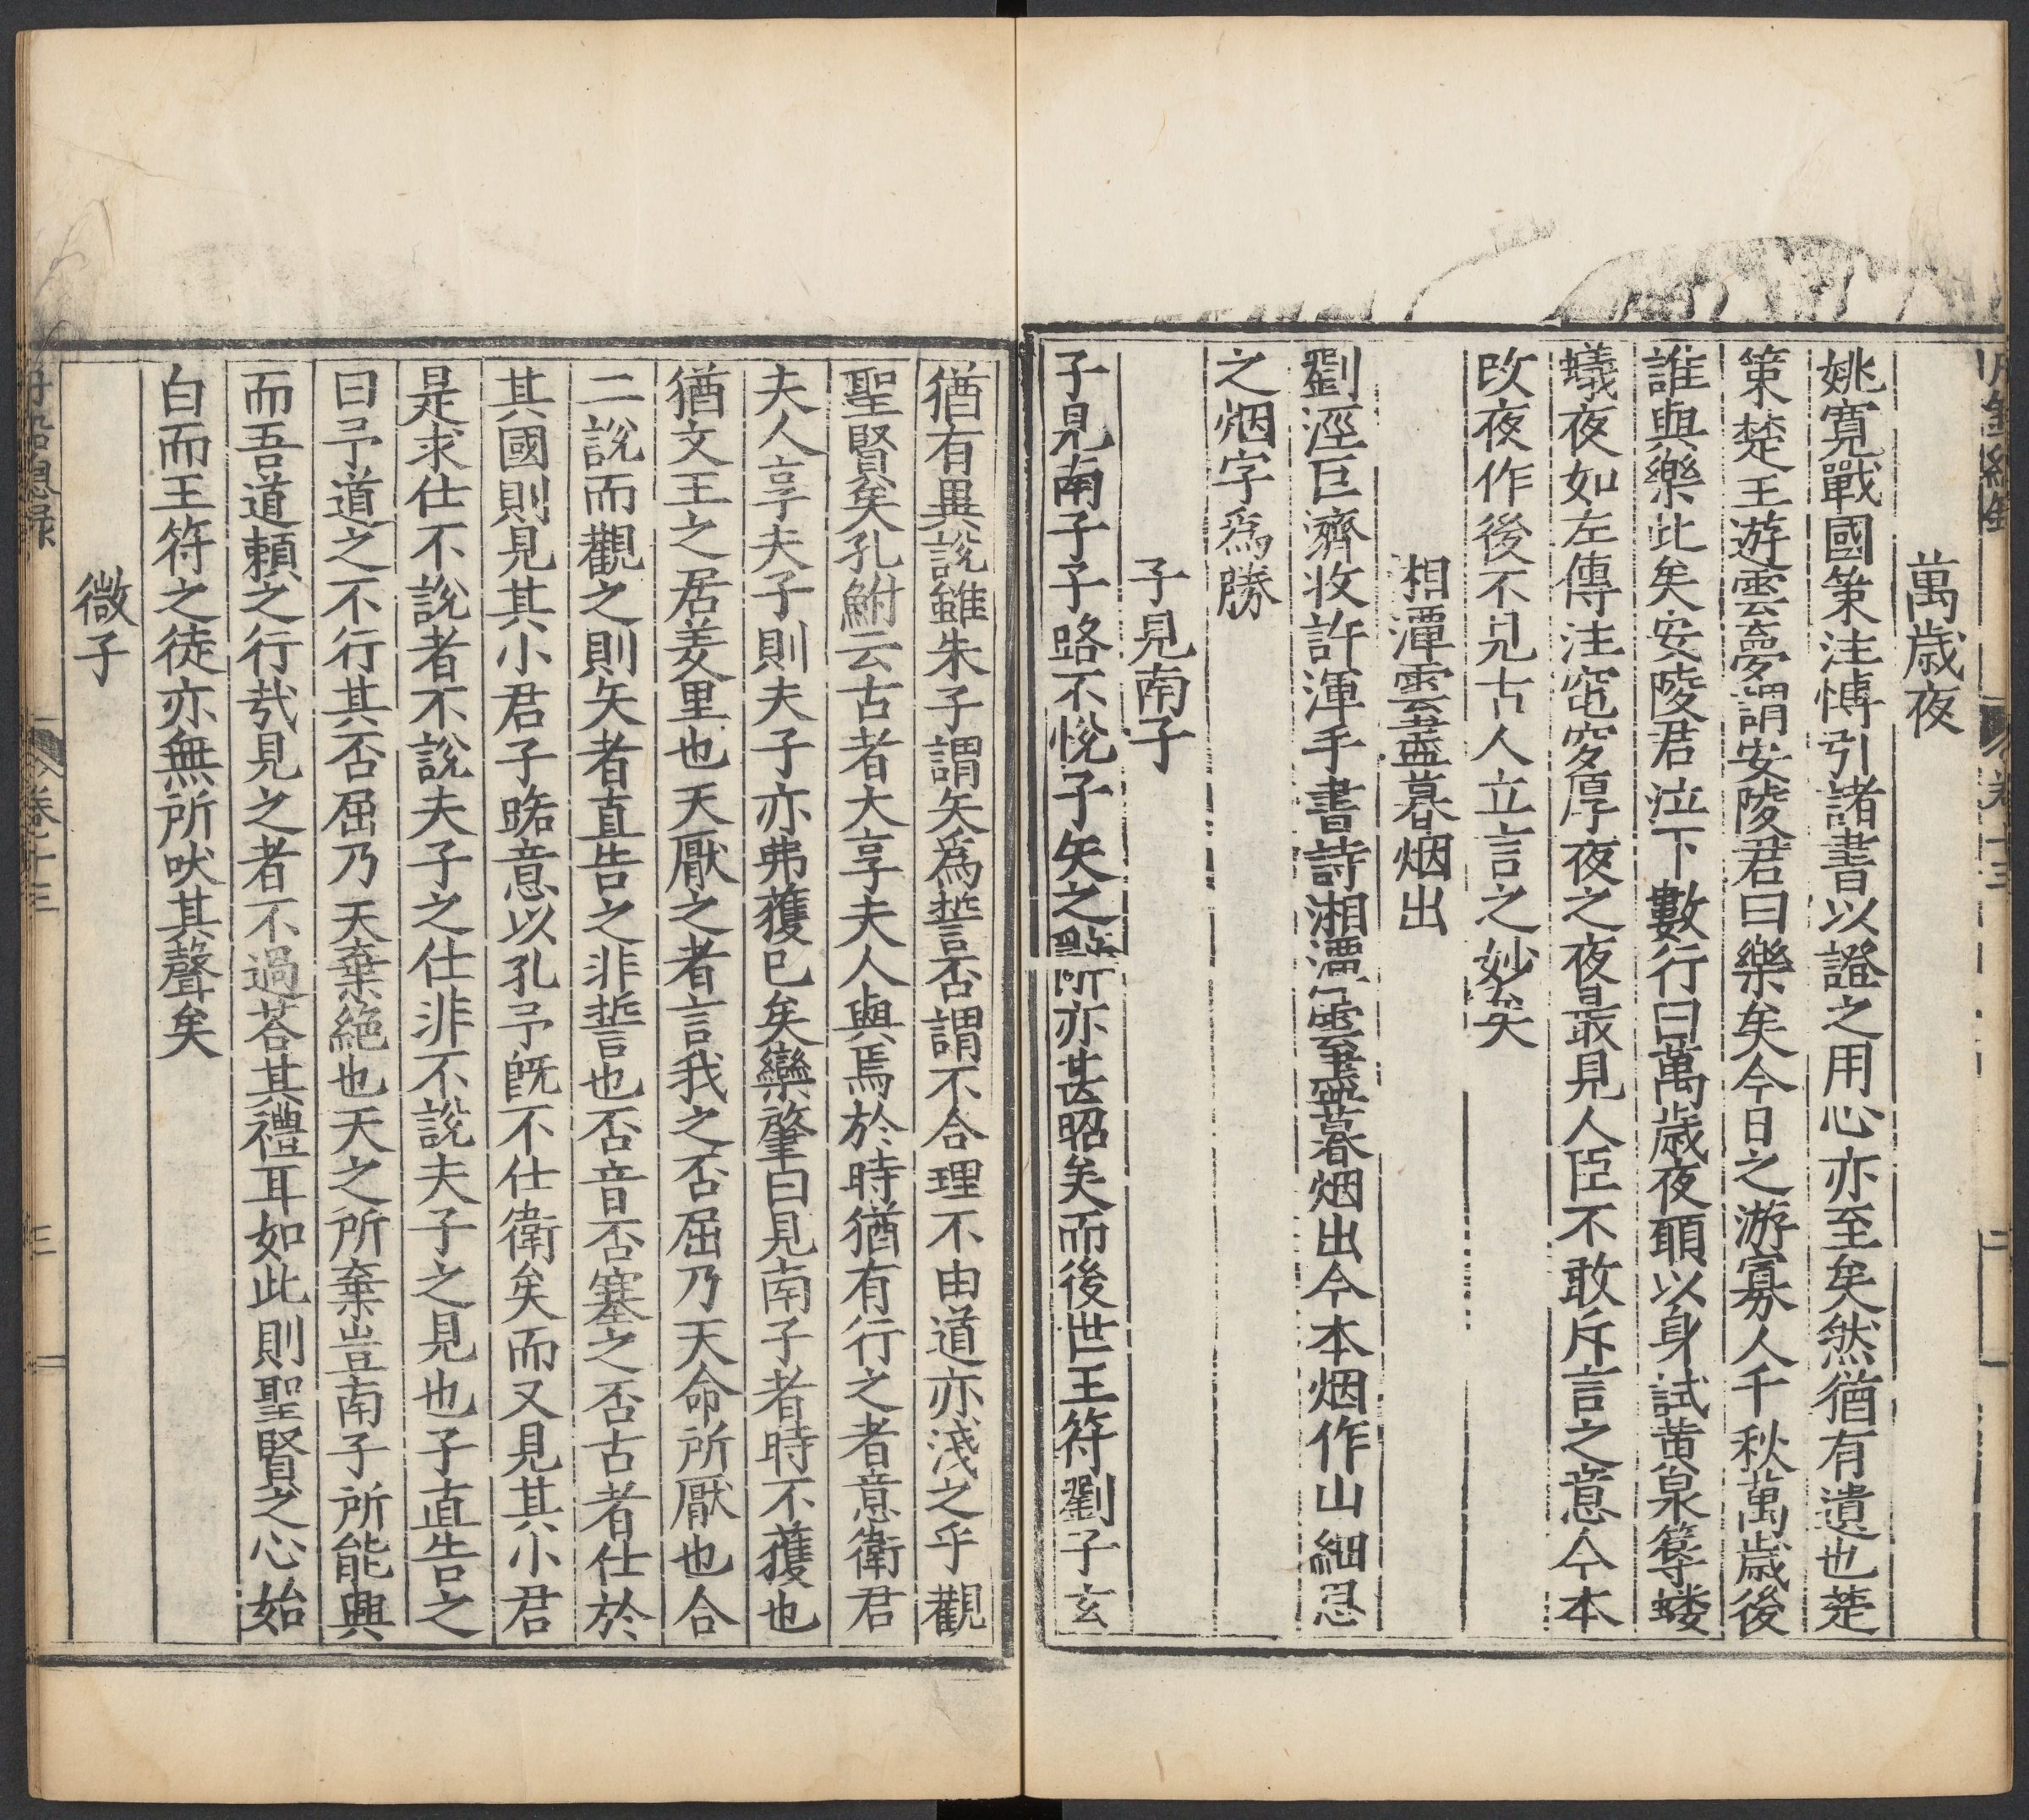 萬歲夜
姚寬戰國策注愽引諸書以證之用心亦至矣然猶有遺也楚
策楚王遊雲夢謂安陵君曰樂矣今日之游寡人千秋萬歲後
誰與樂此矣安陵君泣下數行曰萬歲夜願以身試黃泉蓐螻
蟻夜如左傳注窀穸厚夜之夜最見人臣不敢斥言之意今本
改夜作後不見古人立言之妙矣
相潭雲盡暮烟出
劉涇巨濟收許渾手書詩湘潭雲盡暮烟出今本烟作山細忍
之烟字爲勝
子見南子
子見南子子路不悅子矢之 所亦甚昭矣而後世王符劉子玄
猶有異說雖朱子謂矢爲誓否謂不合理不由道亦淺之乎觀
聖賢矣孔鮒云古者大享夫人與焉於時猶有行之者意衛君
夫人享夫子則夫子亦弗獲已矣欒肇曰見南子者時不獲也
猶文王之居羑里也天厭之者言我之否屈乃天命所厭也合
二說而觀之則矢者直告之非誓也否音否塞之否古者仕於
其國則見其小君子路意以孔子旣不仕衛矣而又見其小君
是求仕不說者不說夫子之仕非不說夫子之見也子直告之
曰予道之不行其否屈乃天棄絕也天之所棄豈南子所能興
而吾道賴之行哉見之者不過荅其禮耳如此則聖賢之心始
白而王符之徒亦無所吠其聲矣
微子
卷十三
三